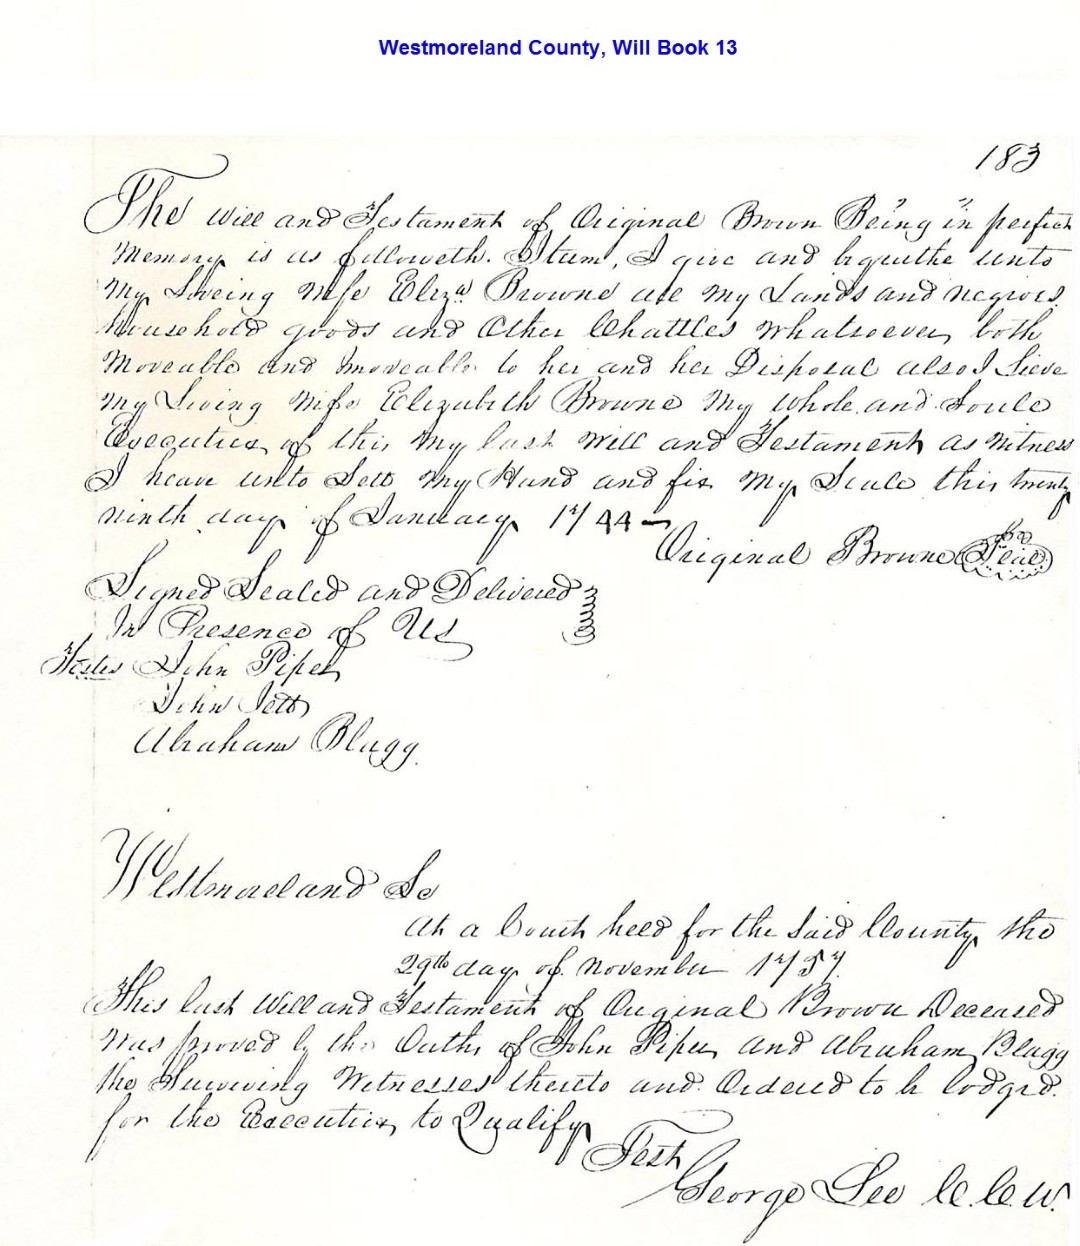 Westmoreland County, Will Book 13
183
The Will and Testament of Original Brown Being in perfect
Memory is as followeth. Itum, I give and bequethe unto
My Loveing Wife Eliza Browne all My Lands and negroes
household goods and Other Chattles Whatsoever, both
Moveable and imoveable to her and her Disposal also I Lieve
My Loving Wife Elizabeth Browne My whole and Soule
Executrix of this My last Will and Testament as Witness
I heave unto Sett My Hand and fix My Seale this twenty
ninth day of January 1744
Original Browne Seal
Signed Sealed and Delivered
In Presence of Us
Testes John Piper
John Jett
Abraham Blagg
Westmoreland Sc
At a Court held for the Said County the
29th day of November 1757
This last Will and Testament of Original Brown Deceased
Was proved by the Oaths of John Piper and Abraham Blagg
the Surviving Witnesses thereto and Ordered to be lodged
for the Executrix to Qualify
Test
George Lee C. C. W.